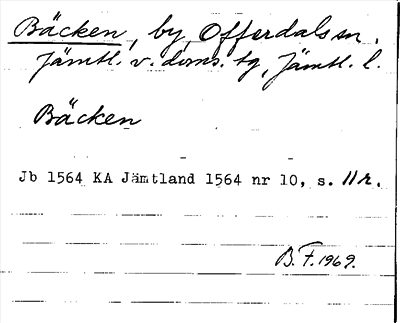 Bäcken, by, Offerdals sn.
Jämtl. v. doms. tg, Jämtl. l.
Bäcken
Jb 1564 KA Jämtland 1564 nr 10, s. 11 r.
B.F. 1969.